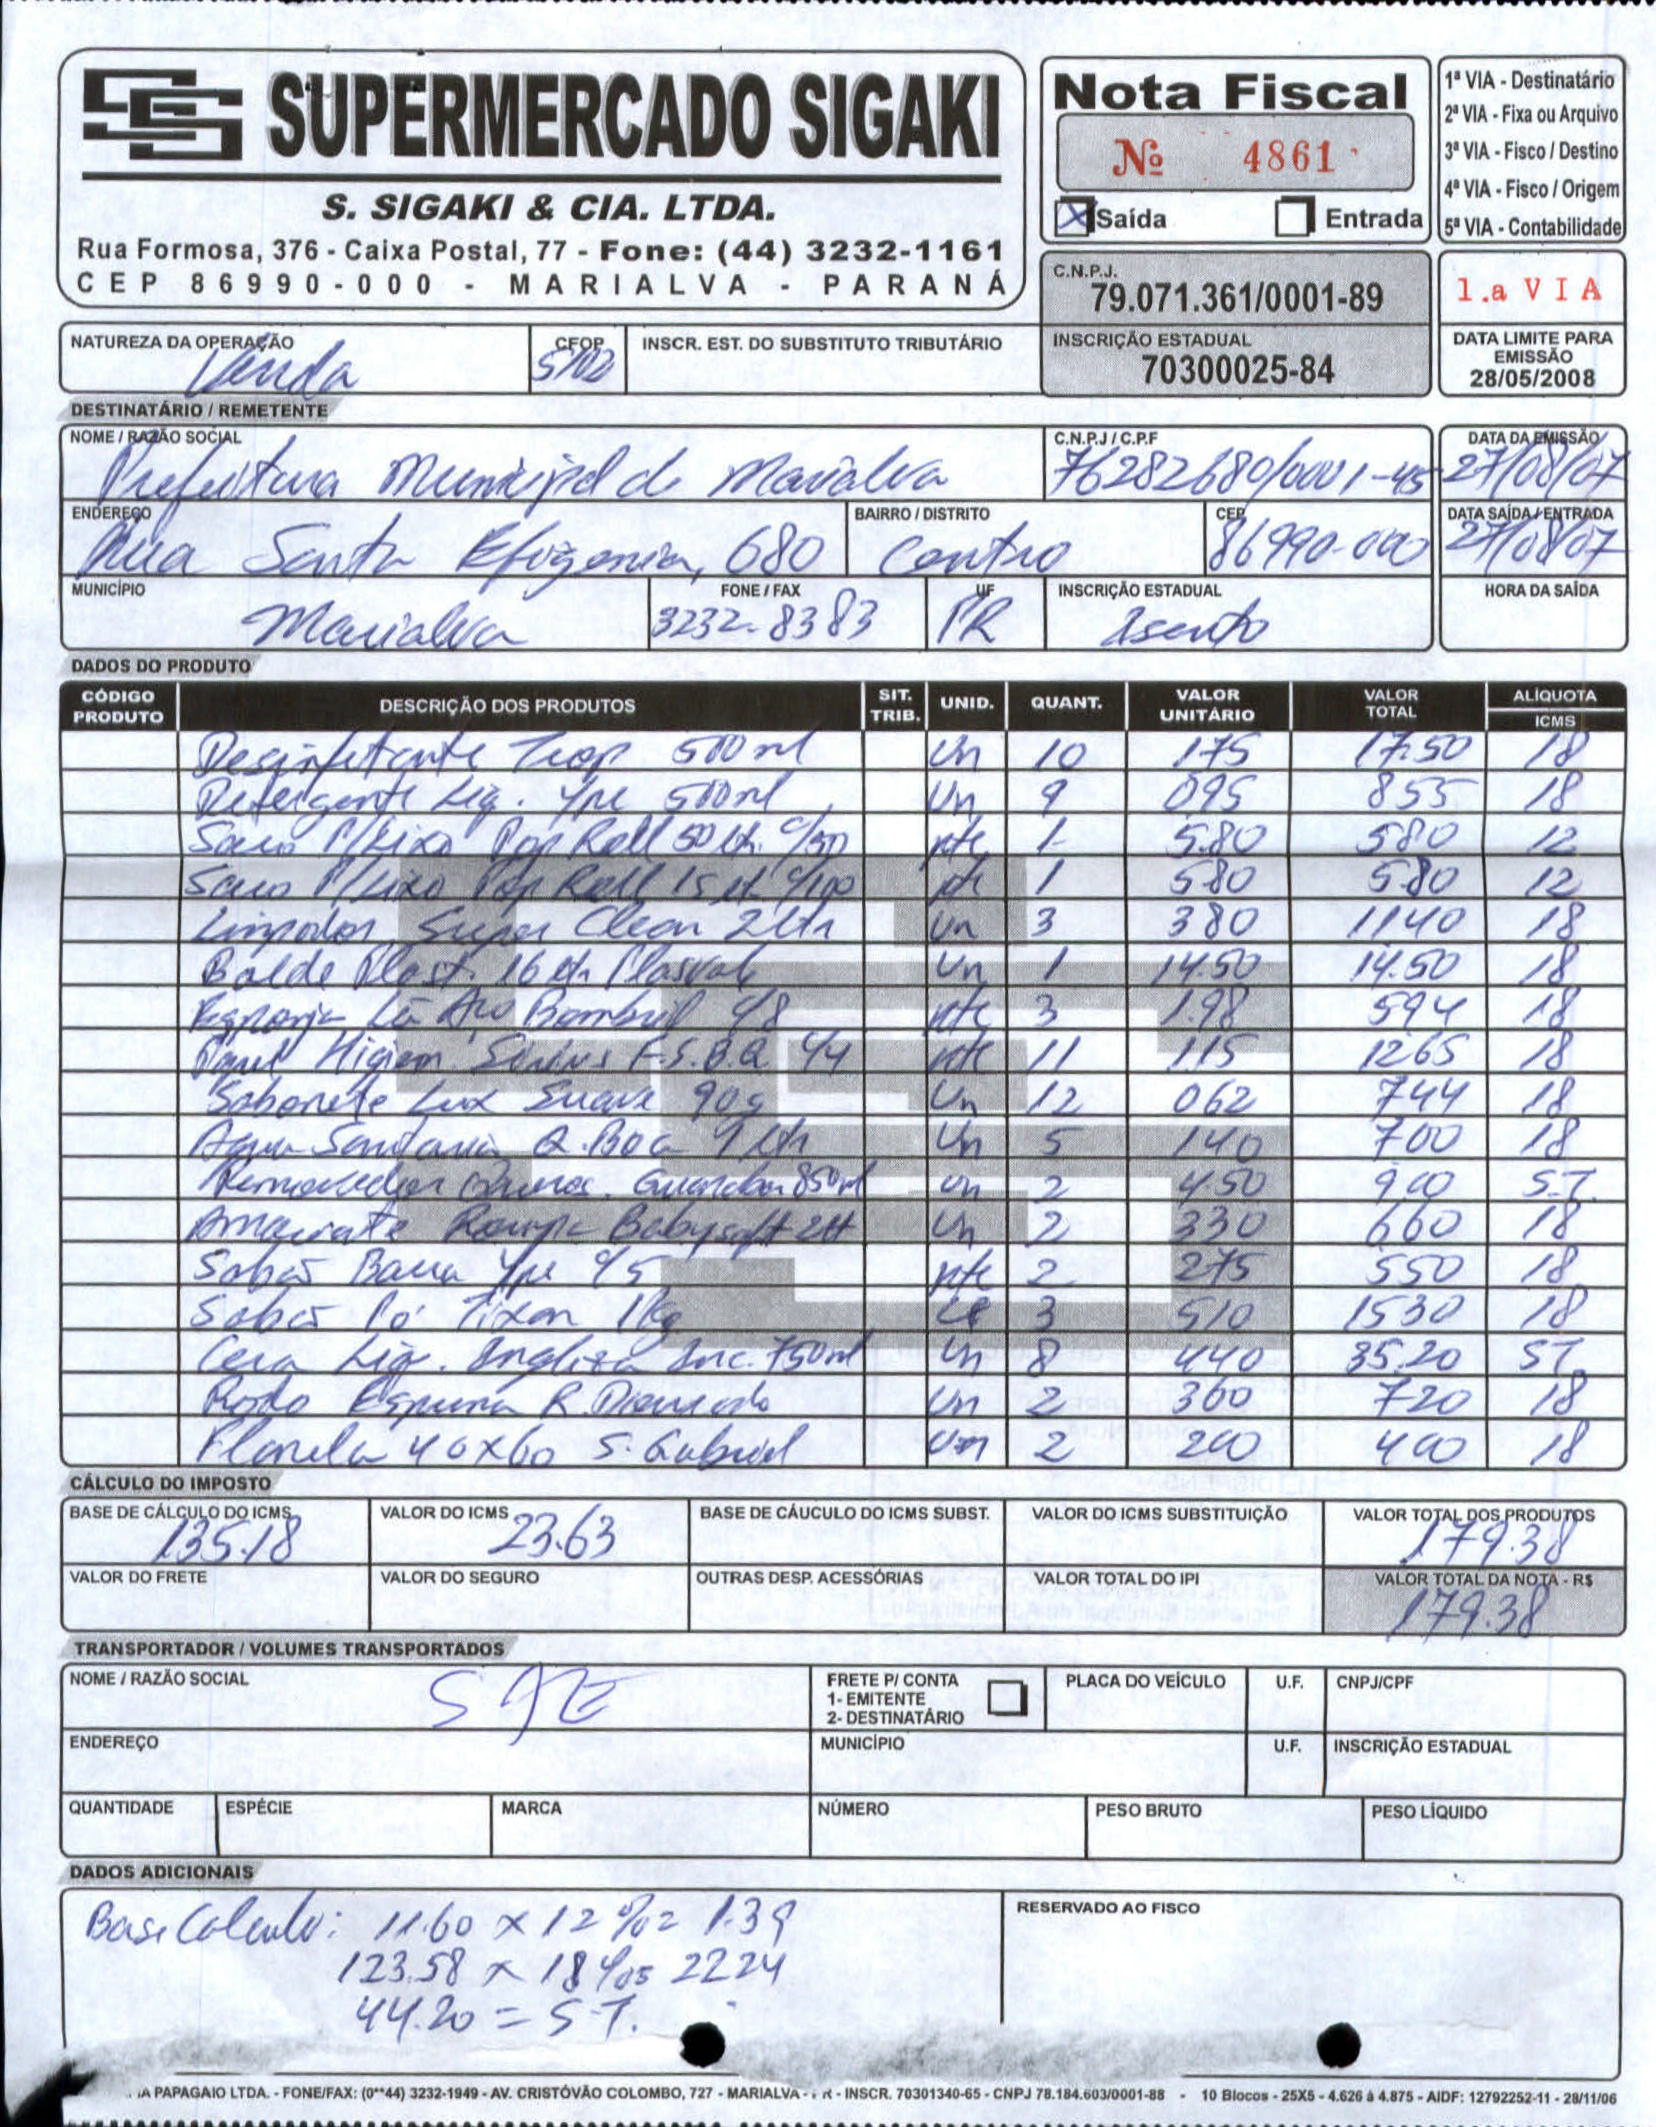 SUPERMERCADO SIGAKI
S. SIGAKI & CIA. LTDA.
Rua Formosa, 376 - Caixa Postal, 77 - Fone: (44) 3232-1161
CEP 86990-000 - MARIALVA - PARANÁ
Nota Fiscal
Nº 4861
X Saída Entrada
1ª VIA - Destinatário
2ª VIA - Fixa ou Arquivo
3ª VIA - Fisco / Destino
4ª VIA - Fisco / Origem
5ª VIA - Contabilidade
C.N.P.J.
79.071.361/0001-89
INSCRIÇÃO ESTADUAL
70300025-84
1.a VIA
DATA LIMITE PARA
EMISSÃO
28/05/2008
NATUREZA DA OPERAÇÃO CFOP INSCR. EST. DO SUBSTITUTO TRIBUTÁRIO
Venda 5102
DESTINATÁRIO / REMETENTE
NOME / RAZÃO SOCIAL C.N.P.J / C.P.F DATA DA EMISSÃO
Prefeitura Municipal de Marialva 76282680/0001-45 27/08/07
ENDEREÇO BAIRRO / DISTRITO CEP DATA SAÍDA / ENTRADA
Rua Santa Efigenia, 680 Centro 86990-000 27/08/07
MUNICÍPIO FONE / FAX UF INSCRIÇÃO ESTADUAL HORA DA SAÍDA
Marialva 3232-8383 PR Isento
DADOS DO PRODUTO
CÓDIGO PRODUTO DESCRIÇÃO DOS PRODUTOS SIT. TRIB. UNID. QUANT. VALOR UNITÁRIO VALOR TOTAL ALÍQUOTA ICMS
Desinfetante Trop 500 ml Un 10 175 17.50 18
Detergente Liq. Ype 500 ml Un 9 095 855 18
Saco P/Lixo Pop Roll 50 lt. c/50 pte 1 5.80 580 12
Saco P/Lixo Pop Roll 15 lt c/100 pte 1 580 580 12
Limpador Super Clean 2 Ltr Un 3 380 1140 18
Balde Plast. 16 ltr Plasvale Un 1 14.50 14.50 18
Esponja Lã Aço Bombril c/8 pte 3 1.98 594 18
Papel Higien. Sirius F.S.B.Q c/4 pte 11 1.15 1265 18
Sabonete Lux Suave 90g Un 12 062 744 18
Agua Sanitaria Q. Boa 1 Ltr Un 5 140 700 18
Removedor Guanabara 850 ml Un 2 4.50 900 S.T.
Amaciante Roupa Babysoft 2lt Un 2 330 660 18
Sabão Barra Ype c/5 pte 2 275 550 18
Sabão Pó Tixan 1kg Cx 3 510 1530 18
Cera Liq. Inglesa Inc. 750 ml Un 8 440 35.20 ST
Rodo Espuma R. Un 2 360 720 18
Flanela 40x60 S. Gabriel Un 2 200 400 18
CÁLCULO DO IMPOSTO
BASE DE CÁLCULO DO ICMS VALOR DO ICMS BASE DE CÁUCULO DO ICMS SUBST. VALOR DO ICMS SUBSTITUIÇÃO VALOR TOTAL DOS PRODUTOS
135.18 23.63 179.38
VALOR DO FRETE VALOR DO SEGURO OUTRAS DESP. ACESSÓRIAS VALOR TOTAL DO IPI VALOR TOTAL DA NOTA - R$
179.38
TRANSPORTADOR / VOLUMES TRANSPORTADOS
NOME / RAZÃO SOCIAL FRETE P/ CONTA PLACA DO VEÍCULO U.F. CNPJ/CPF
1- EMITENTE
2- DESTINATÁRIO
ENDEREÇO MUNICÍPIO U.F. INSCRIÇÃO ESTADUAL
QUANTIDADE ESPÉCIE MARCA NÚMERO PESO BRUTO PESO LÍQUIDO
DADOS ADICIONAIS
RESERVADO AO FISCO
Base Calculo: 11.60 x 12% = 1.39
123.58 x 18% = 2224
44.20 = S.T.
PAPAGAIO LTDA. - FONE/FAX: (0**44) 3232-1949 - AV. CRISTÓVÃO COLOMBO, 727 - MARIALVA - PR - INSCR. 70301340-65 - CNPJ 78.184.603/0001-88 - 10 Blocos - 25X5 - 4.626 à 4.875 - AIDF: 12792252-11 - 28/11/06